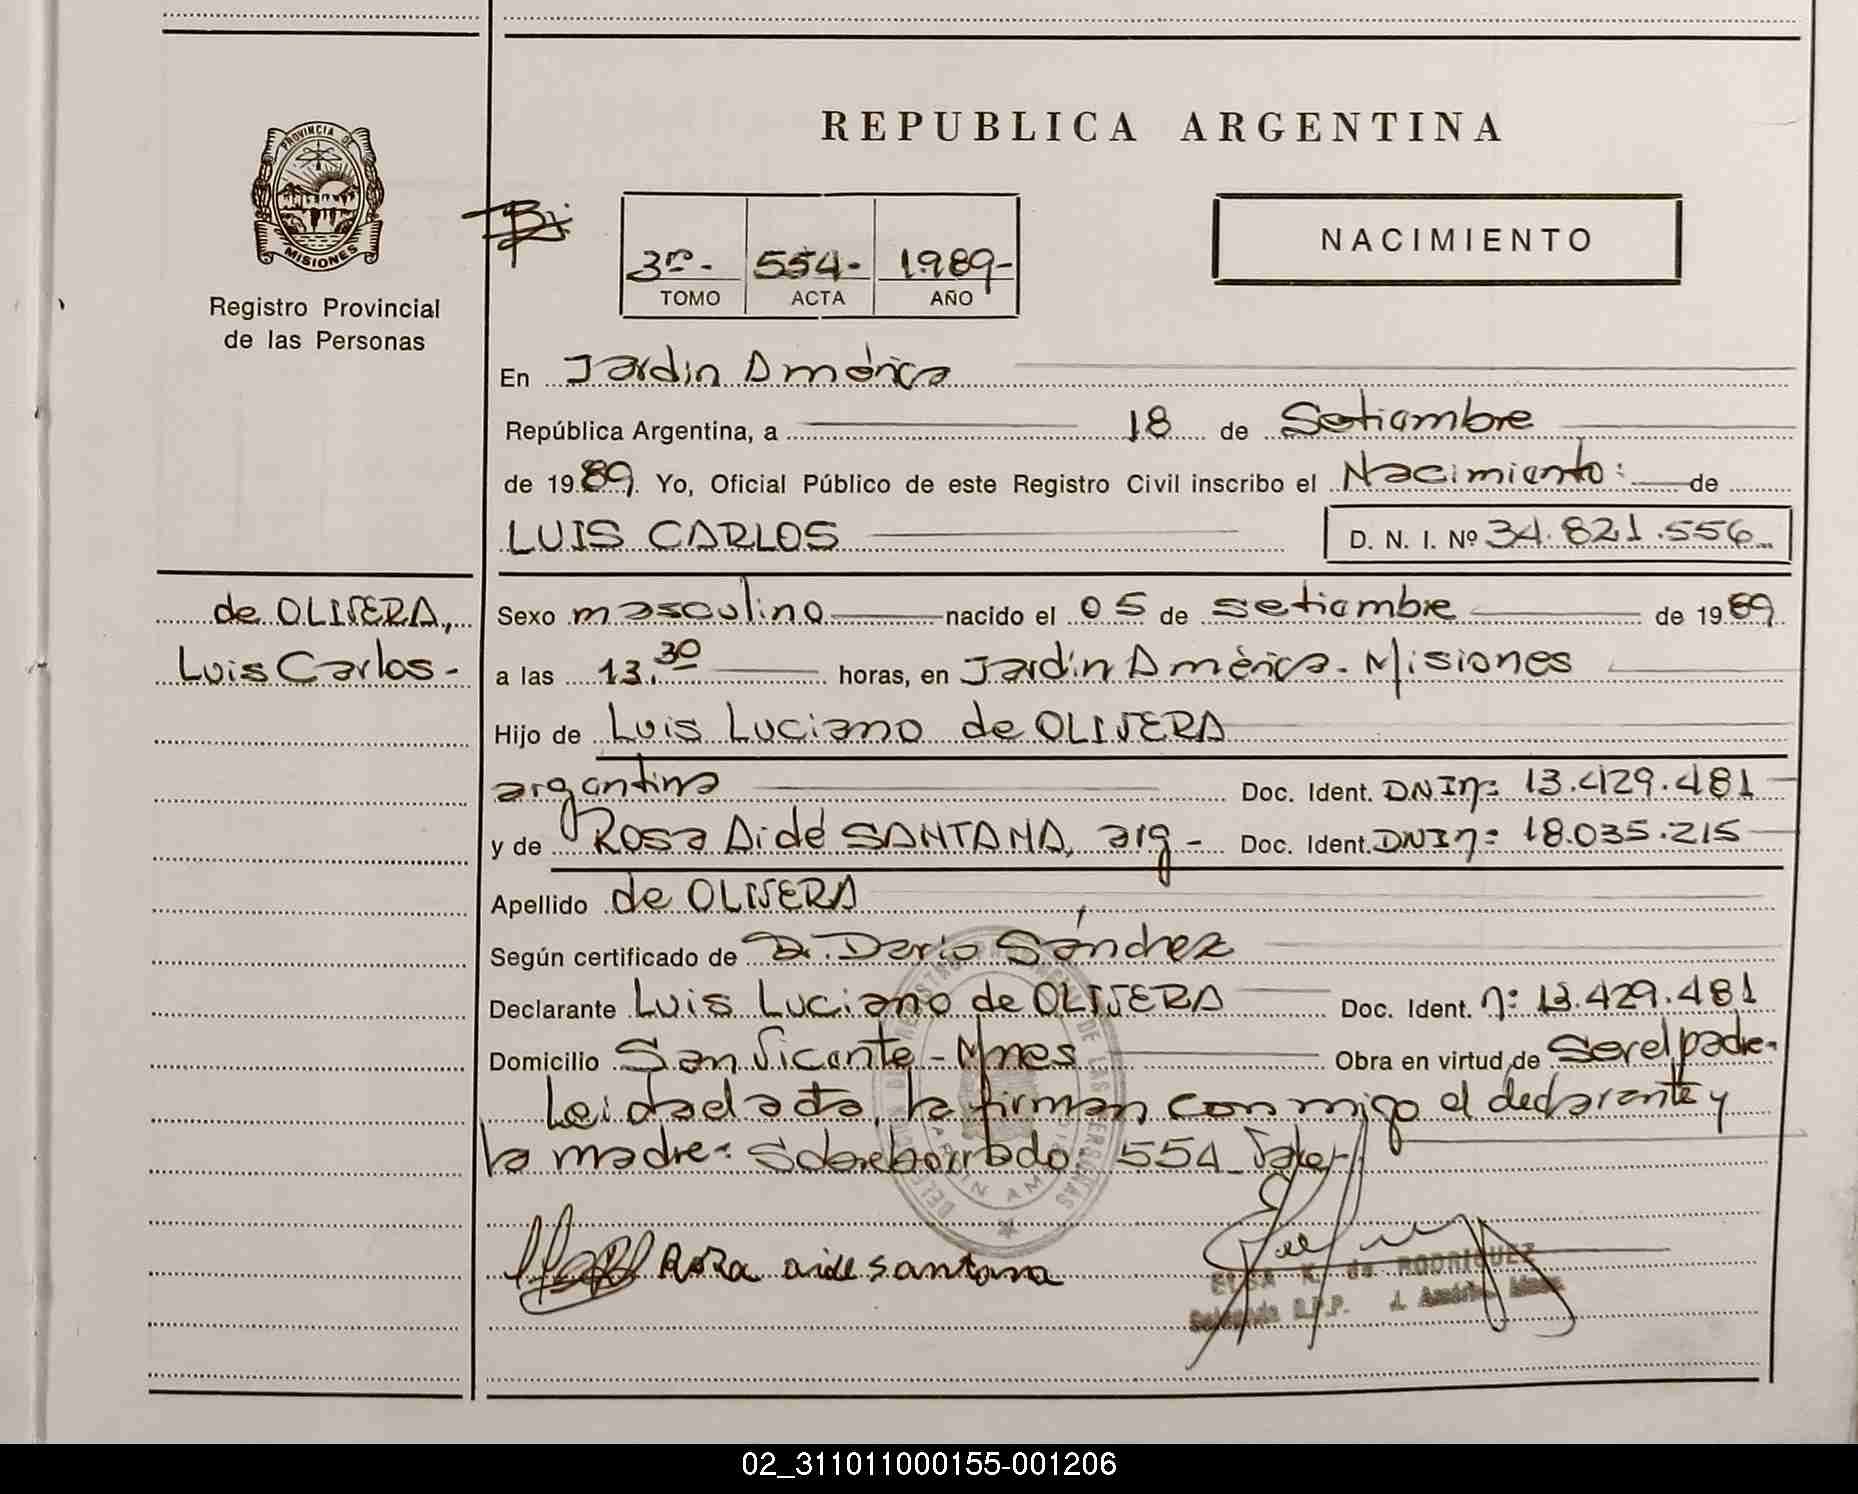 REPUBLICA ARGENTINA
PROVINCIA DE
MISIONES
Registro Provincial
de las Personas
3ro- 554- 1989-
TOMO ACTA AÑO
NACIMIENTO
En Jardin América
República Argentina, a 18 de Setiembre
de 1989. Yo, Oficial Público de este Registro Civil inscribo el Nacimiento: de
LUIS CARLOS D. N. I. Nº 34.821.556
de OLIVERA,
Luis Carlos-
Sexo masculino nacido el 05 de setiembre de 1989
a las 13.30 horas, en Jardin América. Misiones
Hijo de Luis Luciano de OLIVERA
argentina Doc. Ident. DNIn: 13.429.481
y de Rosa Aidé SANTANA, arg- Doc. Ident. DNIn: 18.035.215
Apellido de OLIVERA
Según certificado de Dr. Dario Sánchez
Declarante Luis Luciano de OLIVERA Doc. Ident. n: 13.429.481
Domicilio San Vicente - Mnes Obra en virtud de Ser el padre-
Leida el acta, la firman conmigo el declarante y
la madre-: Sobreborrado 554 Vale-
DE LAS PERSONAS
Rosa aide santana
ELSA K. de RODRIGUEZ
Delegada R.P.P. J. América. Mnes
02_311011000155-001206